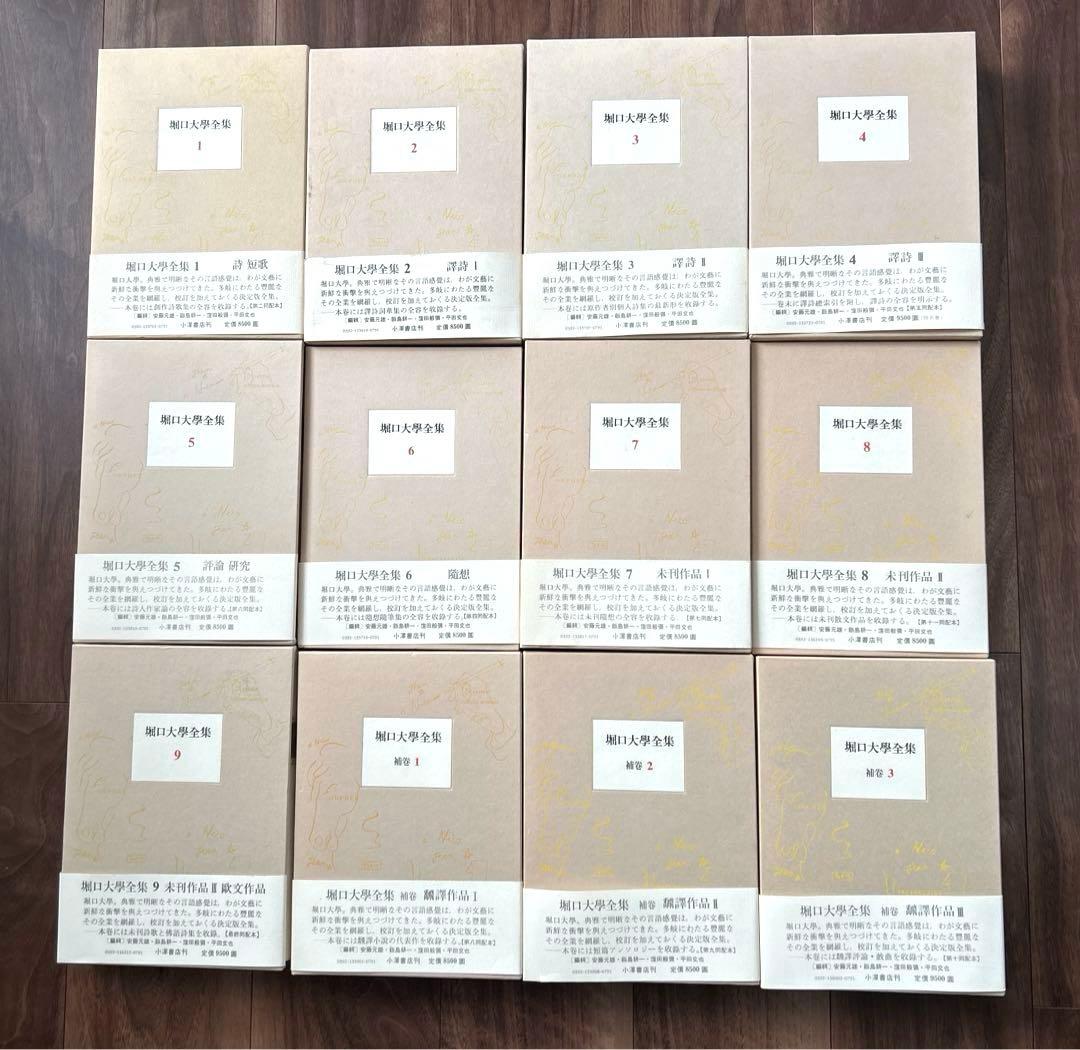 堀口大學全集
1
堀口大學全集 1 詩 短歌
堀口大學。典雅で明晰なその言語感覺は、わが文藝に
新鮮な衝擊を與えつづけてきた。多岐にわたる豐麗な
その全業を網羅し、校訂を加えておくる決定版全集。
──本卷には創作詩歌集の全容を收錄する。【第二囘配本】
［編輯］安藤元雄・飯島耕一・窪田般彌・平田文也
小澤書店刊 定價8500圓
堀口大學全集
2
堀口大學全集 2 譯詩 Ⅰ
堀口大學。典雅で明晰なその言語感覺は、わが文藝に
新鮮な衝擊を與えつづけてきた。多岐にわたる豐麗な
その全業を網羅し、校訂を加えておくる決定版全集。
──本卷には譯詩詞華集の全容を收錄する。
［編輯］安藤元雄・飯島耕一・窪田般彌・平田文也
小澤書店刊 定價8500圓
堀口大學全集
3
堀口大學全集 3 譯詩 Ⅱ
堀口大學。典雅で明晰なその言語感覺は、わが文藝に
新鮮な衝擊を與えつづけてきた。多岐にわたる豐麗な
その全業を網羅し、校訂を加えておくる決定版全集。
──本卷には原作者別個人詩集の最新形を收錄する。
［編輯］安藤元雄・飯島耕一・窪田般彌・平田文也
小澤書店刊 定價8500圓
堀口大學全集
4
堀口大學全集 4 譯詩 Ⅲ
堀口大學。典雅で明晰なその言語感覺は、わが文藝に
新鮮な衝擊を與えつづけてきた。多岐にわたる豐麗な
その全業を網羅し、校訂を加えておくる決定版全集。
──卷末に譯詩總索引を附し、譯詩の全容を明示する。
［編輯］安藤元雄・飯島耕一・窪田般彌・平田文也【第五囘配本】
小澤書店刊 定價9500圓
堀口大學全集
5
堀口大學全集 5 評論 研究
堀口大學。典雅で明晰なその言語感覺は、わが文藝に
新鮮な衝擊を與えつづけてきた。多岐にわたる豐麗な
その全業を網羅し、校訂を加えておくる決定版全集。
──本卷には詩人作家論の全容を收錄する【第六囘配本】
［編輯］安藤元雄・飯島耕一・窪田般彌・平田文也
小澤書店刊 定價8500圓
堀口大學全集
6
堀口大學全集 6 隨想
堀口大學。典雅で明晰なその言語感覺は、わが文藝に
新鮮な衝擊を與えつづけてきた。多岐にわたる豐麗な
その全業を網羅し、校訂を加えておくる決定版全集。
──本卷には隨想隨筆集の全容を收錄する【第四囘配本】
［編輯］安藤元雄・飯島耕一・窪田般彌・平田文也
小澤書店刊 定價8500圓
堀口大學全集
7
堀口大學全集 7 未刊作品 Ⅰ
堀口大學。典雅で明晰なその言語感覺は、わが文藝に
新鮮な衝擊を與えつづけてきた。多岐にわたる豐麗な
その全業を網羅し、校訂を加えておくる決定版全集。
──本卷には未刊隨想の全容を收錄する 【第七囘配本】
［編輯］安藤元雄・飯島耕一・窪田般彌・平田文也
小澤書店刊 定價8500圓
堀口大學全集
8
堀口大學全集 8 未刊作品 Ⅱ
堀口大學。典雅で明晰なその言語感覺は、わが文藝に
新鮮な衝擊を與えつづけてきた。多岐にわたる豐麗な
その全業を網羅し、校訂を加えておくる決定版全集。
──本卷には未刊散文作品を收錄する。【第十一囘配本】
［編輯］安藤元雄・飯島耕一・窪田般彌・平田文也
小澤書店刊 定價8900圓
堀口大學全集
9
堀口大學全集 9 未刊作品 Ⅲ 歐文作品
堀口大學。典雅で明晰なその言語感覺は、わが文藝に
新鮮な衝擊を與えつづけてきた。多岐にわたる豐麗な
その全業を網羅し、校訂を加えておくる決定版全集。
──本卷には未刊詩歌と佛語詩集を收錄。【最終囘配本】
［編輯］安藤元雄・飯島耕一・窪田般彌・平田文也
小澤書店刊 定價9500圓
堀口大學全集
補卷 1
堀口大學全集 補卷 飜譯作品 Ⅰ
堀口大學。典雅で明晰なその言語感覺は、わが文藝に
新鮮な衝擊を與えつづけてきた。多岐にわたる豐麗な
その全業を網羅し、校訂を加えておくる決定版全集。
──本卷には飜譯小說の代表作を收錄する【第八囘配本】
［編輯］安藤元雄・飯島耕一・窪田般彌・平田文也
小澤書店刊 定價8500圓
堀口大學全集
補卷 2
堀口大學全集 補卷 飜譯作品 Ⅱ
堀口大學。典雅で明晰なその言語感覺は、わが文藝に
新鮮な衝擊を與えつづけてきた。多岐にわたる豐麗な
その全業を網羅し、校訂を加えておくる決定版全集。
──本卷には短篇アンソロジーを收錄する。【第九囘配本】
［編輯］安藤元雄・飯島耕一・窪田般彌・平田文也
小澤書店刊 定價8500圓
堀口大學全集
補卷 3
堀口大學全集 補卷 飜譯作品 Ⅲ
堀口大學。典雅で明晰なその言語感覺は、わが文藝に
新鮮な衝擊を與えつづけてきた。多岐にわたる豐麗な
その全業を網羅し、校訂を加えておくる決定版全集。
──本卷には飜譯評論・戲曲を收錄する。【第十囘配本】
［編輯］安藤元雄・飯島耕一・窪田般彌・平田文也
小澤書店刊 定價9500圓